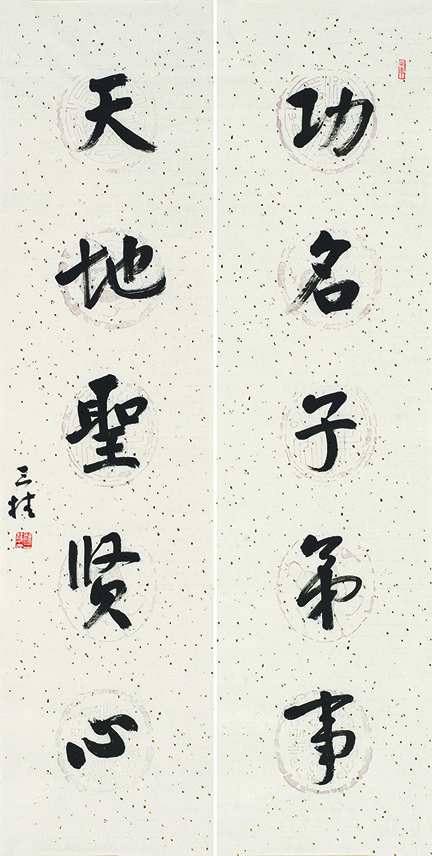 功名子弟事
天地聖贤心
三桂